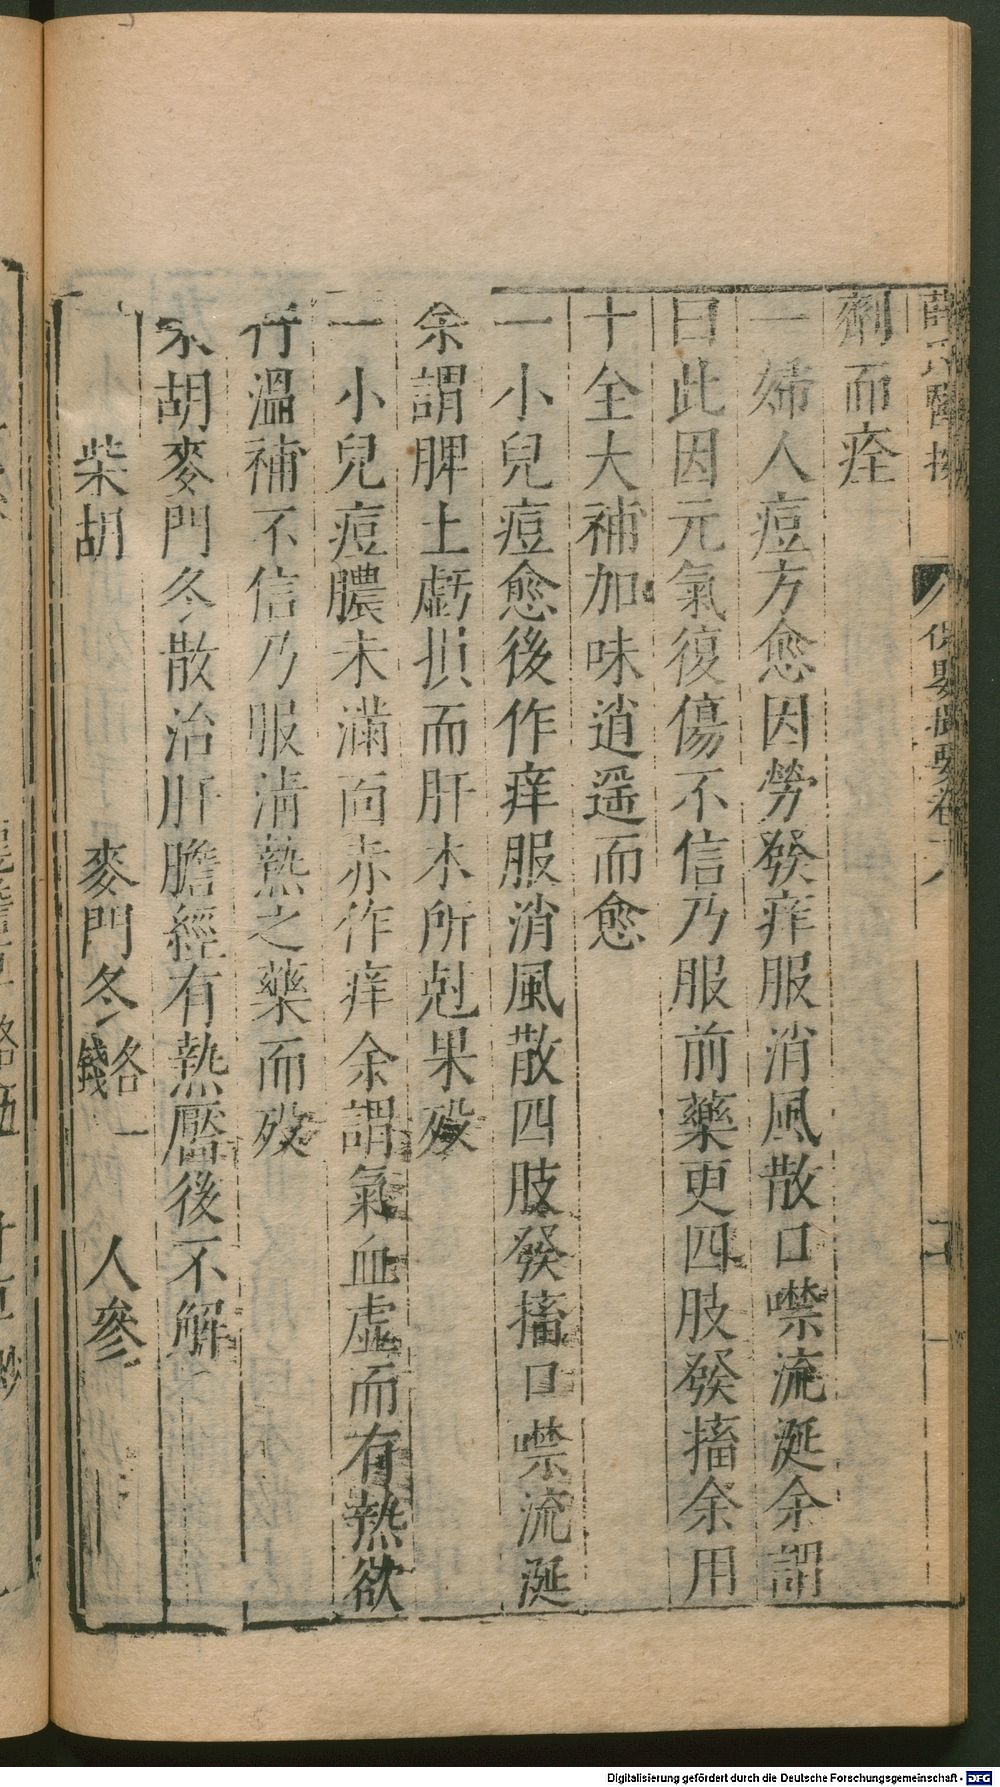 薛氏醫按 保嬰撮要卷十八
劑而痊
一婦人痘方愈因勞發痒服消風散口噤流涎余謂
曰此因元氣復傷不信乃服前藥更四肢發搐余用
十全大補加味逍遥而愈
一小兒痘愈後作痒服消風散四肢發搐口噤流涎
余謂脾土虧損而肝木所尅果歿
一小兒痘膿未滿面赤作痒余謂氣血虛而有熱欲
行溫補不信乃服清熱之藥而歿
柴胡麥門冬散治肝膽經有熱靨後不解
柴胡 麥門冬各一錢 人參
Digitalisierung gefördert durch die Deutsche Forschungsgemeinschaft - DFG